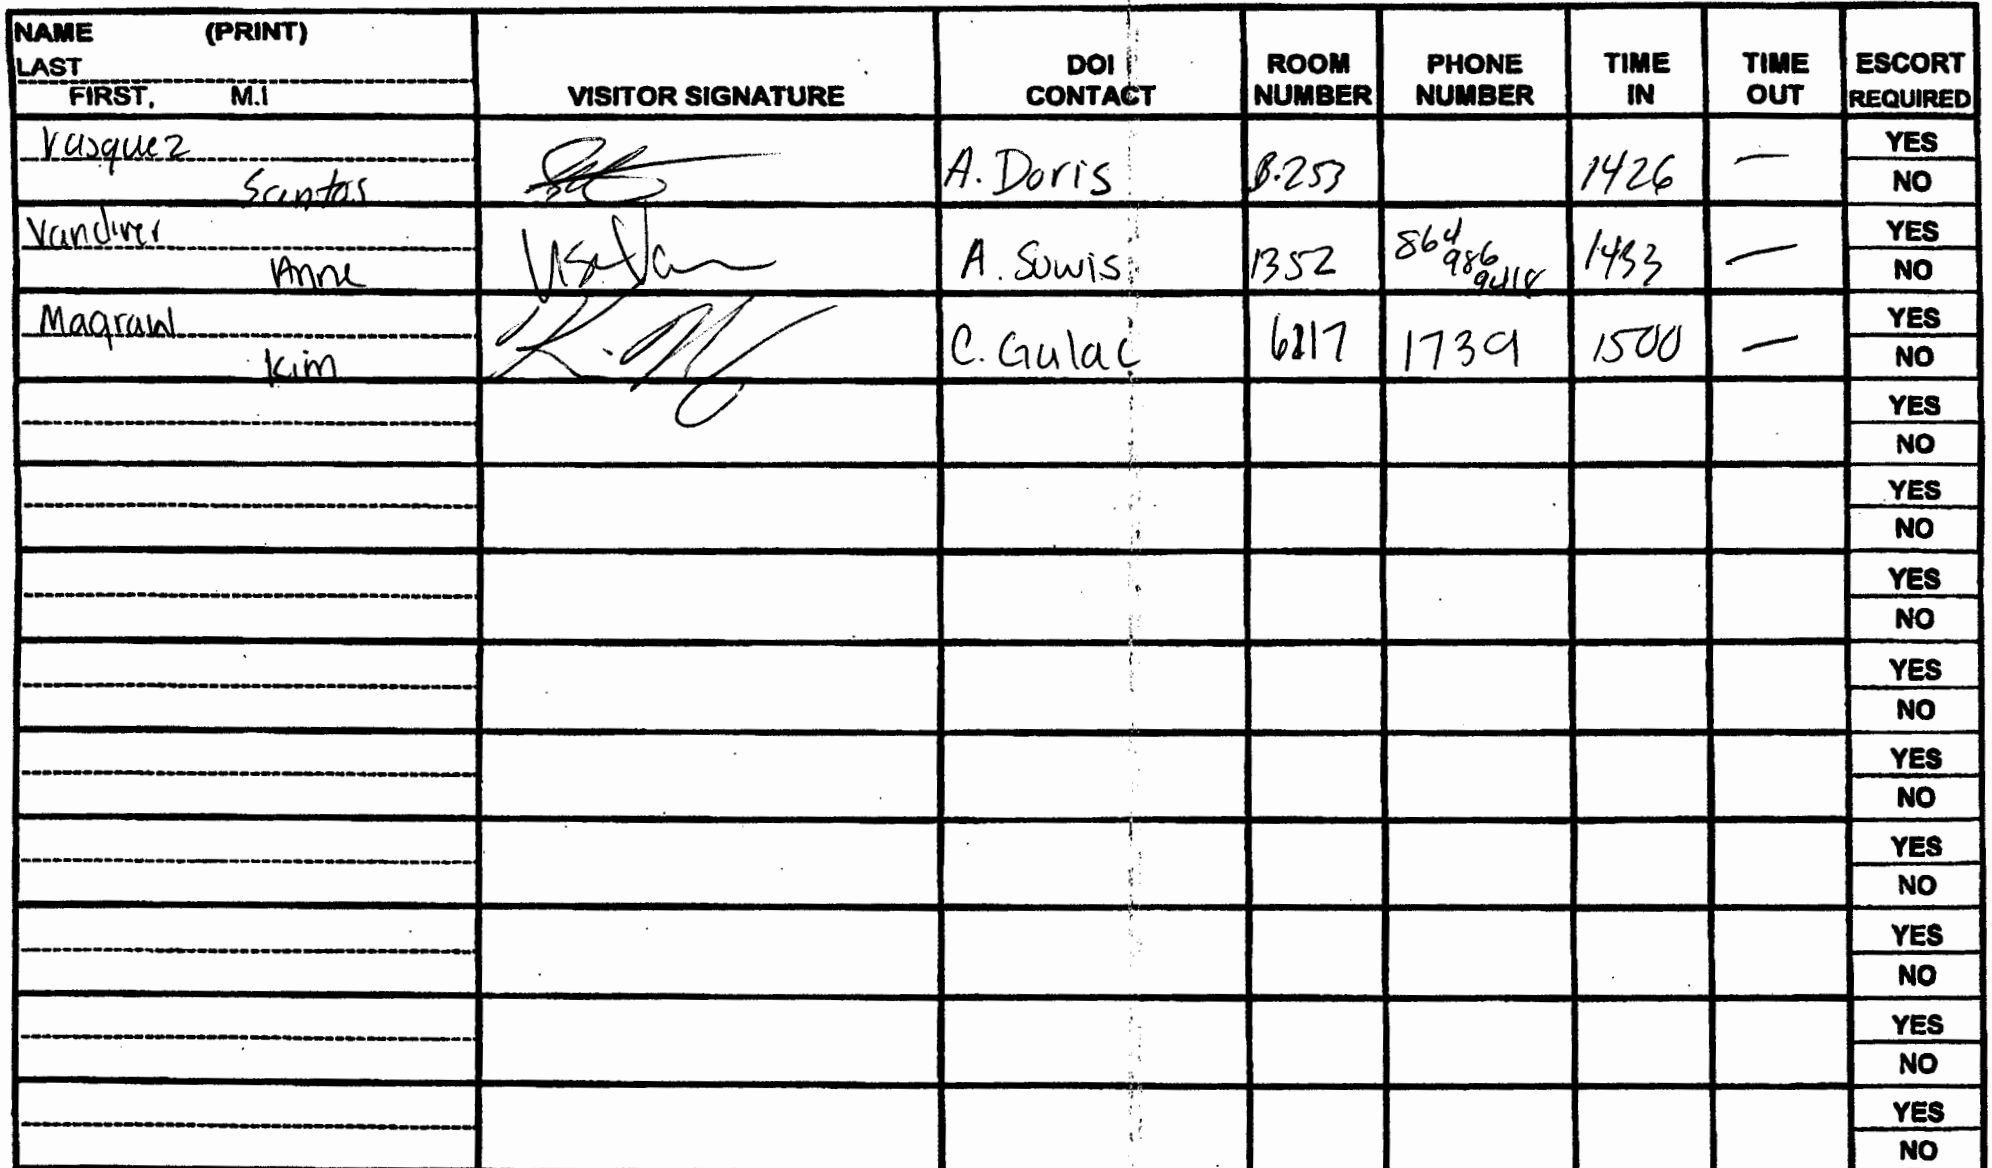 NAME (PRINT)
LAST
FIRST, M.I
VISITOR SIGNATURE
DOI CONTACT
ROOM NUMBER
PHONE NUMBER
TIME IN
TIME OUT
ESCORT REQUIRED
Vasquez
Santos
A. Doris
B-253
1426
—
YES
NO
Vandiver
Anne
A. Suwis
1352
864
986
1433
—
YES
NO
Magraw
Kim
C. Gulac
6217
1739
1500
—
YES
NO
YES
NO
YES
NO
YES
NO
YES
NO
YES
NO
YES
NO
YES
NO
YES
NO
YES
NO